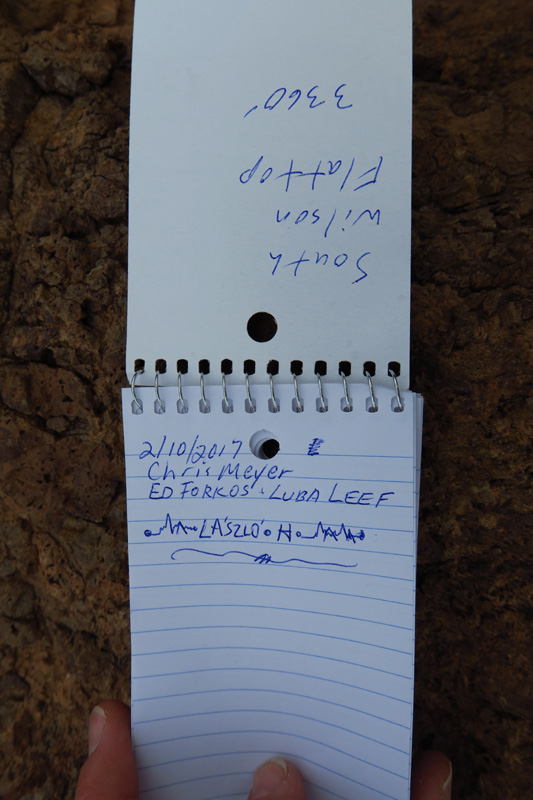 South
Wilson
Flattop
3360'
2/10/2017
Chris Meyer
ED FORKOS · LUBA LEEF
LÁSZLÓ H